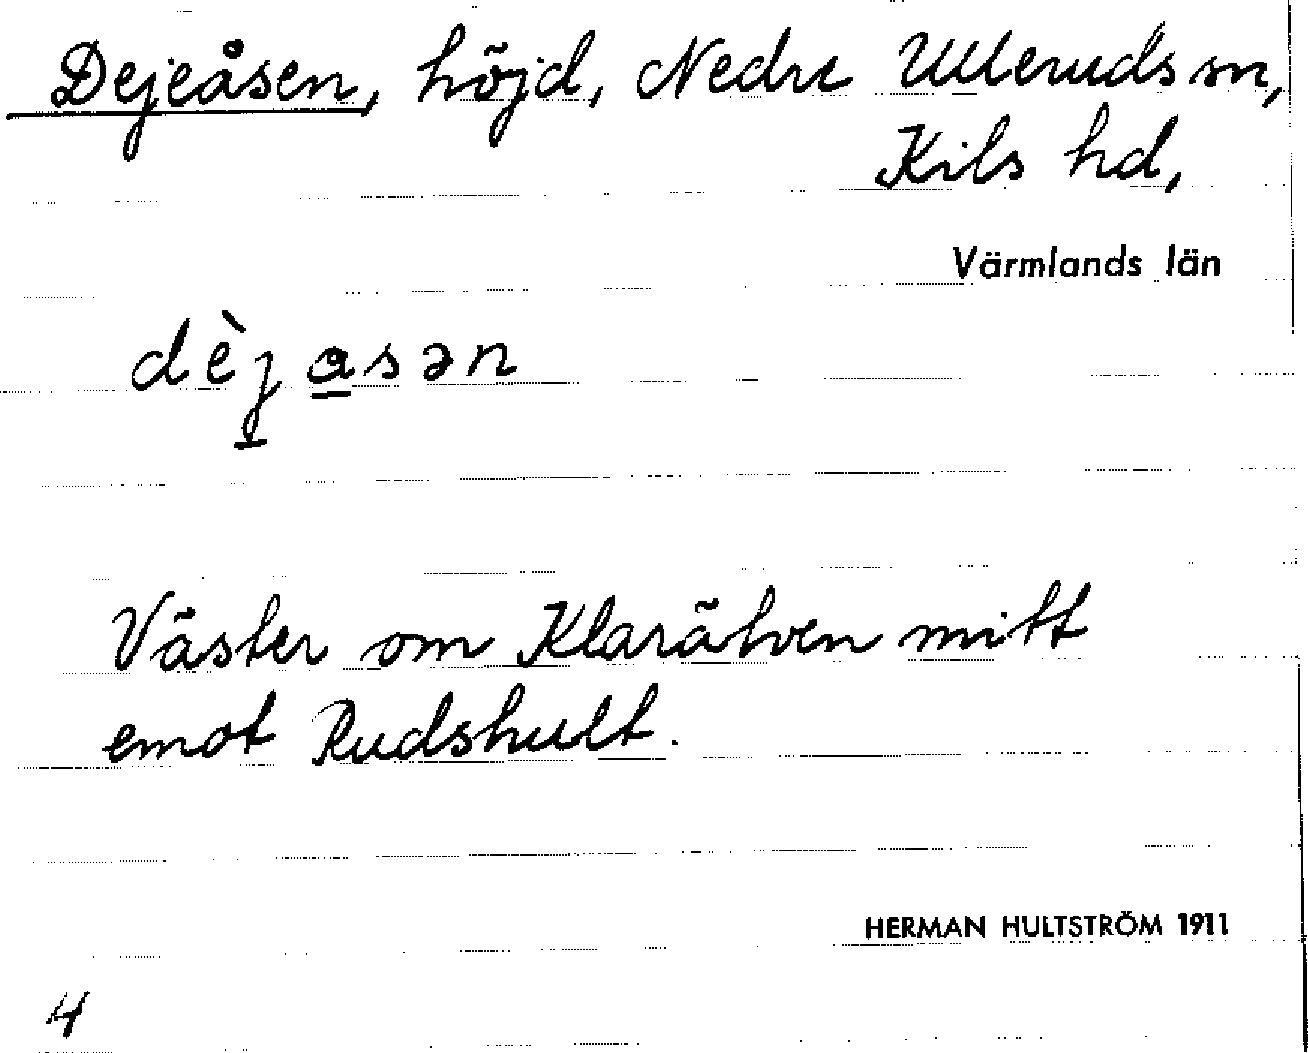 Dejeåsen, höjd, Nedre Ulleruds sn,
Kils hd,
Värmlands län
dèj̱a̱sən
Väster om Klarälven mitt
emot Rudshult.
HERMAN HULTSTRÖM 1911
4